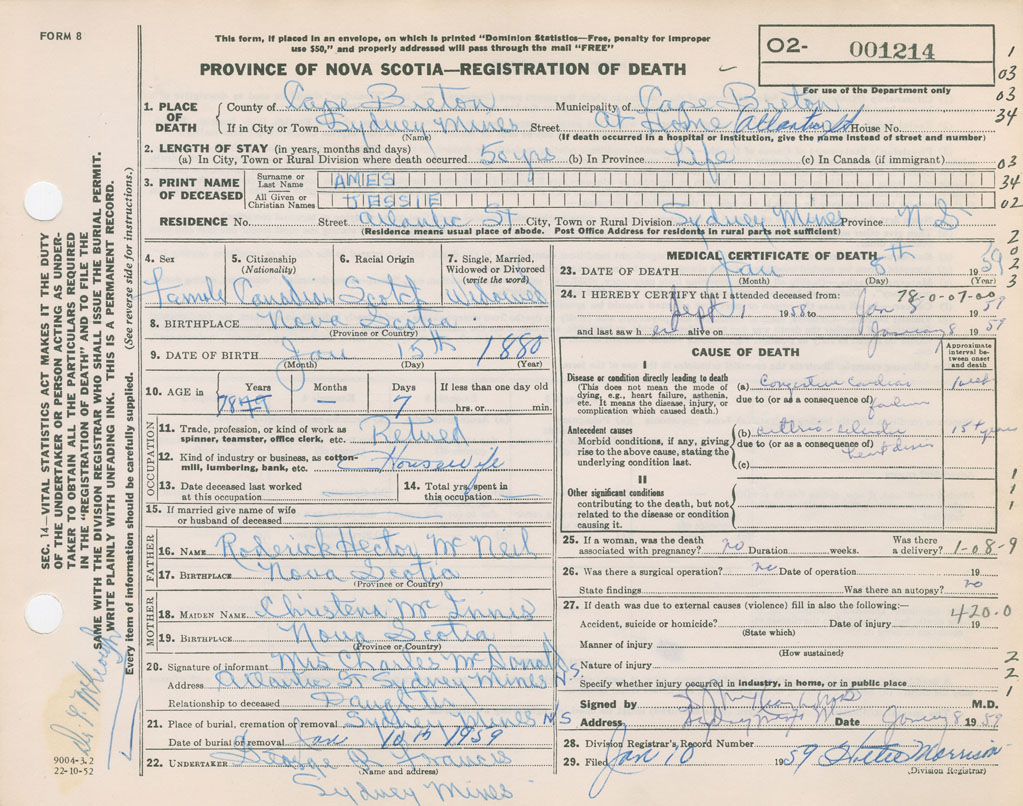 FORM 8
This form, if placed in an envelope, on which is printed "Dominion Statistics—Free, penalty for improper
use $50," and properly addressed will pass through the mail "FREE"
PROVINCE OF NOVA SCOTIA—REGISTRATION OF DEATH
02- 001214
For use of the Department only
1
03
03
34
1. PLACE OF DEATH
County of Cape Breton Municipality of Cape Breton
If in City or Town Sydney Mines Street At Home Atlantic St House No.
(Name) (If death occurred in a hospital or institution, give the name instead of street and number)
2. LENGTH OF STAY (in years, months and days)
(a) In City, Town or Rural Division where death occurred 50 yrs (b) In Province Life (c) In Canada (if immigrant)
03
3. PRINT NAME OF DECEASED
Surname or Last Name AMES
34
All Given or Christian Names JESSIE
02
RESIDENCE No. Street Atlantic St City, Town or Rural Division Sydney Mines Province N S
(Residence means usual place of abode. Post Office Address for residents in rural parts not sufficient)
2
0
2
3
4. Sex Female
5. Citizenship (Nationality) Canadian
6. Racial Origin Scotch
7. Single, Married, Widowed or Divorced (write the word) Widowed
8. BIRTHPLACE Nova Scotia
(Province or Country)
9. DATE OF BIRTH Jan 15th 1880
(Month) (Day) (Year)
10. AGE in Years 78 Months — Days 7 If less than one day old
hrs. or min.
OCCUPATION
11. Trade, profession, or kind of work as spinner, teamster, office clerk, etc. Retired
12. Kind of industry or business, as cotton-mill, lumbering, bank, etc. Housewife
13. Date deceased last worked at this occupation —
14. Total yrs. spent in this occupation —
15. If married give name of wife or husband of deceased —
FATHER
16. NAME Roderick Hector McNeil
17. BIRTHPLACE Nova Scotia
(Province or Country)
MOTHER
18. MAIDEN NAME Christena McInnis
19. BIRTHPLACE Nova Scotia
(Province or Country)
20. Signature of informant Mrs Charles McDonald
Address Atlantic St Sydney Mines N.S.
Relationship to deceased Daughter
21. Place of burial, cremation or removal Sydney Mines N/S
Date of burial or removal Jan 10th 1959
22. UNDERTAKER George B Francis
(Name and address)
Sydney Mines
MEDICAL CERTIFICATE OF DEATH
23. DATE OF DEATH Jan 8th 1959
(Month) (Day) (Year)
24. I HEREBY CERTIFY that I attended deceased from: 78-0-07-00
Sept 1 1958 to Jan 8 1959
and last saw her alive on January 8 1959
CAUSE OF DEATH
Approximate interval between onset and death
I
Disease or condition directly leading to death
(This does not mean the mode of dying, e.g., heart failure, asthenia, etc. It means the disease, injury, or complication which caused death.)
(a) Congestive Cardiac 1 week
due to (or as a consequence of) failure
Antecedent causes
Morbid conditions, if any, giving rise to the above cause, stating the underlying condition last.
(b) 15+ years
due to (or as a consequence of) heart disease
(c)
II
Other significant conditions
contributing to the death, but not related to the disease or condition causing it.
1
1
1
25. If a woman, was the death associated with pregnancy? no Duration weeks. Was there a delivery? 1-08-9
26. Was there a surgical operation? no Date of operation 19
State findings Was there an autopsy? no
27. If death was due to external causes (violence) fill in also the following:— 420.0
Accident, suicide or homicide? Date of injury 19
(State which)
Manner of injury
(How sustained)
Nature of injury
Specify whether injury occurred in industry, in home, or in public place
2
2
1
Signed by M.D.
Address Sydney Mines Date January 8 1959
28. Division Registrar's Record Number
29. Filed Jan 10 1959 Morrison
(Division Registrar)
SEC. 14—VITAL STATISTICS ACT MAKES IT THE DUTY
OF THE UNDERTAKER OR PERSON ACTING AS UNDER-
TAKER TO OBTAIN ALL THE PARTICULARS REQUIRED
IN THE "REGISTRATION OF DEATH" AND TO FILE THE
SAME WITH THE DIVISION REGISTRAR WHO SHALL ISSUE THE BURIAL PERMIT.
WRITE PLAINLY WITH UNFADING INK. THIS IS A PERMANENT RECORD.
Every item of information should be carefully supplied. (See reverse side for instructions.)
9004-3.2
22-10-52